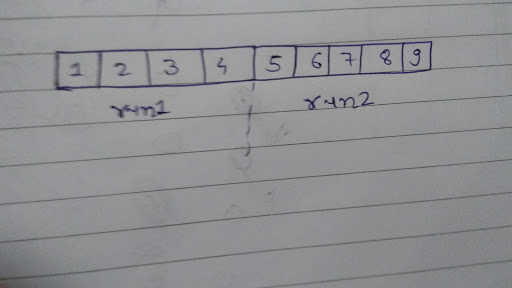 1 2 3 4 5 6 7 8 9
run1 run2